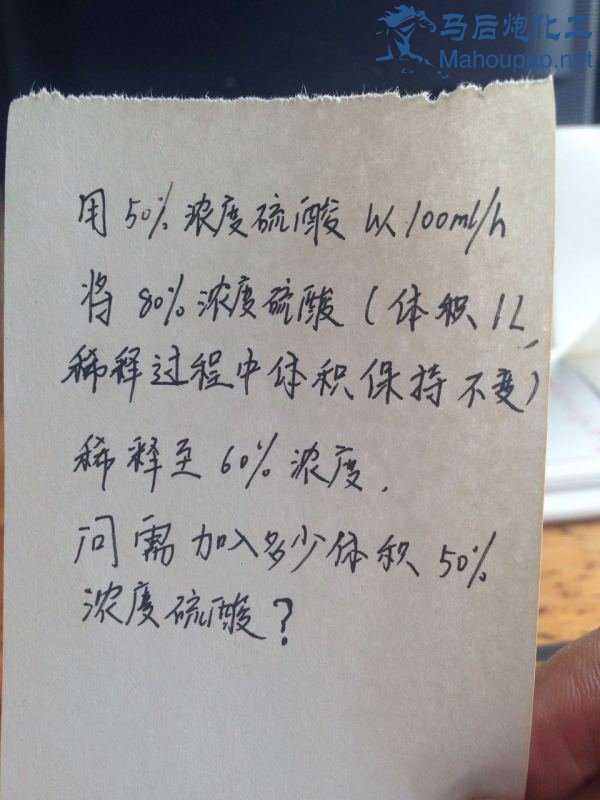 马后炮化工
Mahoupao.net
用50%浓度硫酸以100ml/h
将80%浓度硫酸(体积1L,
稀释过程中体积保持不变)
稀释至60%浓度.
问需加入多少体积50%
浓度硫酸?